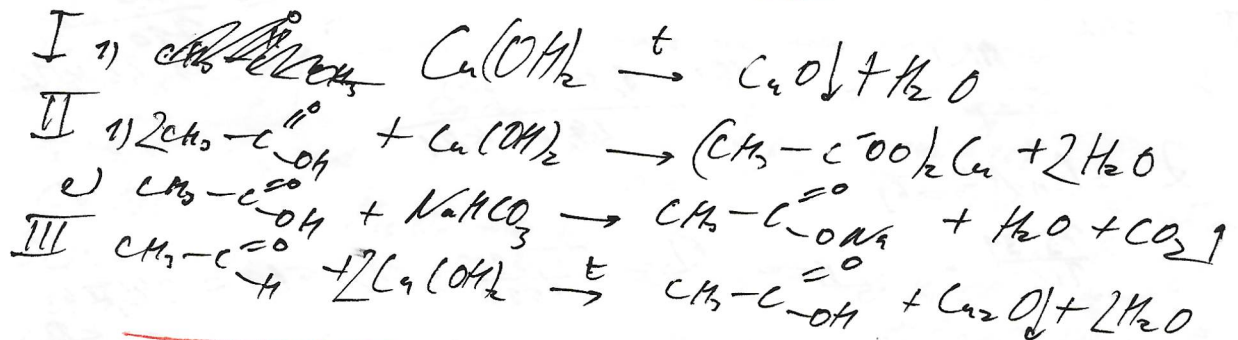 I 1) Cu(OH)₂ —t→ CuO↓ + H₂O
II 1) 2CH₃–C(=O)–OH + Cu(OH)₂ → (CH₃–COO)₂Cu + 2H₂O
2) CH₃–C(=O)–OH + NaHCO₃ → CH₃–C(=O)–ONa + H₂O + CO₂↑
III CH₃–C(=O)–H + 2Cu(OH)₂ —t→ CH₃–C(=O)–OH + Cu₂O↓ + 2H₂O